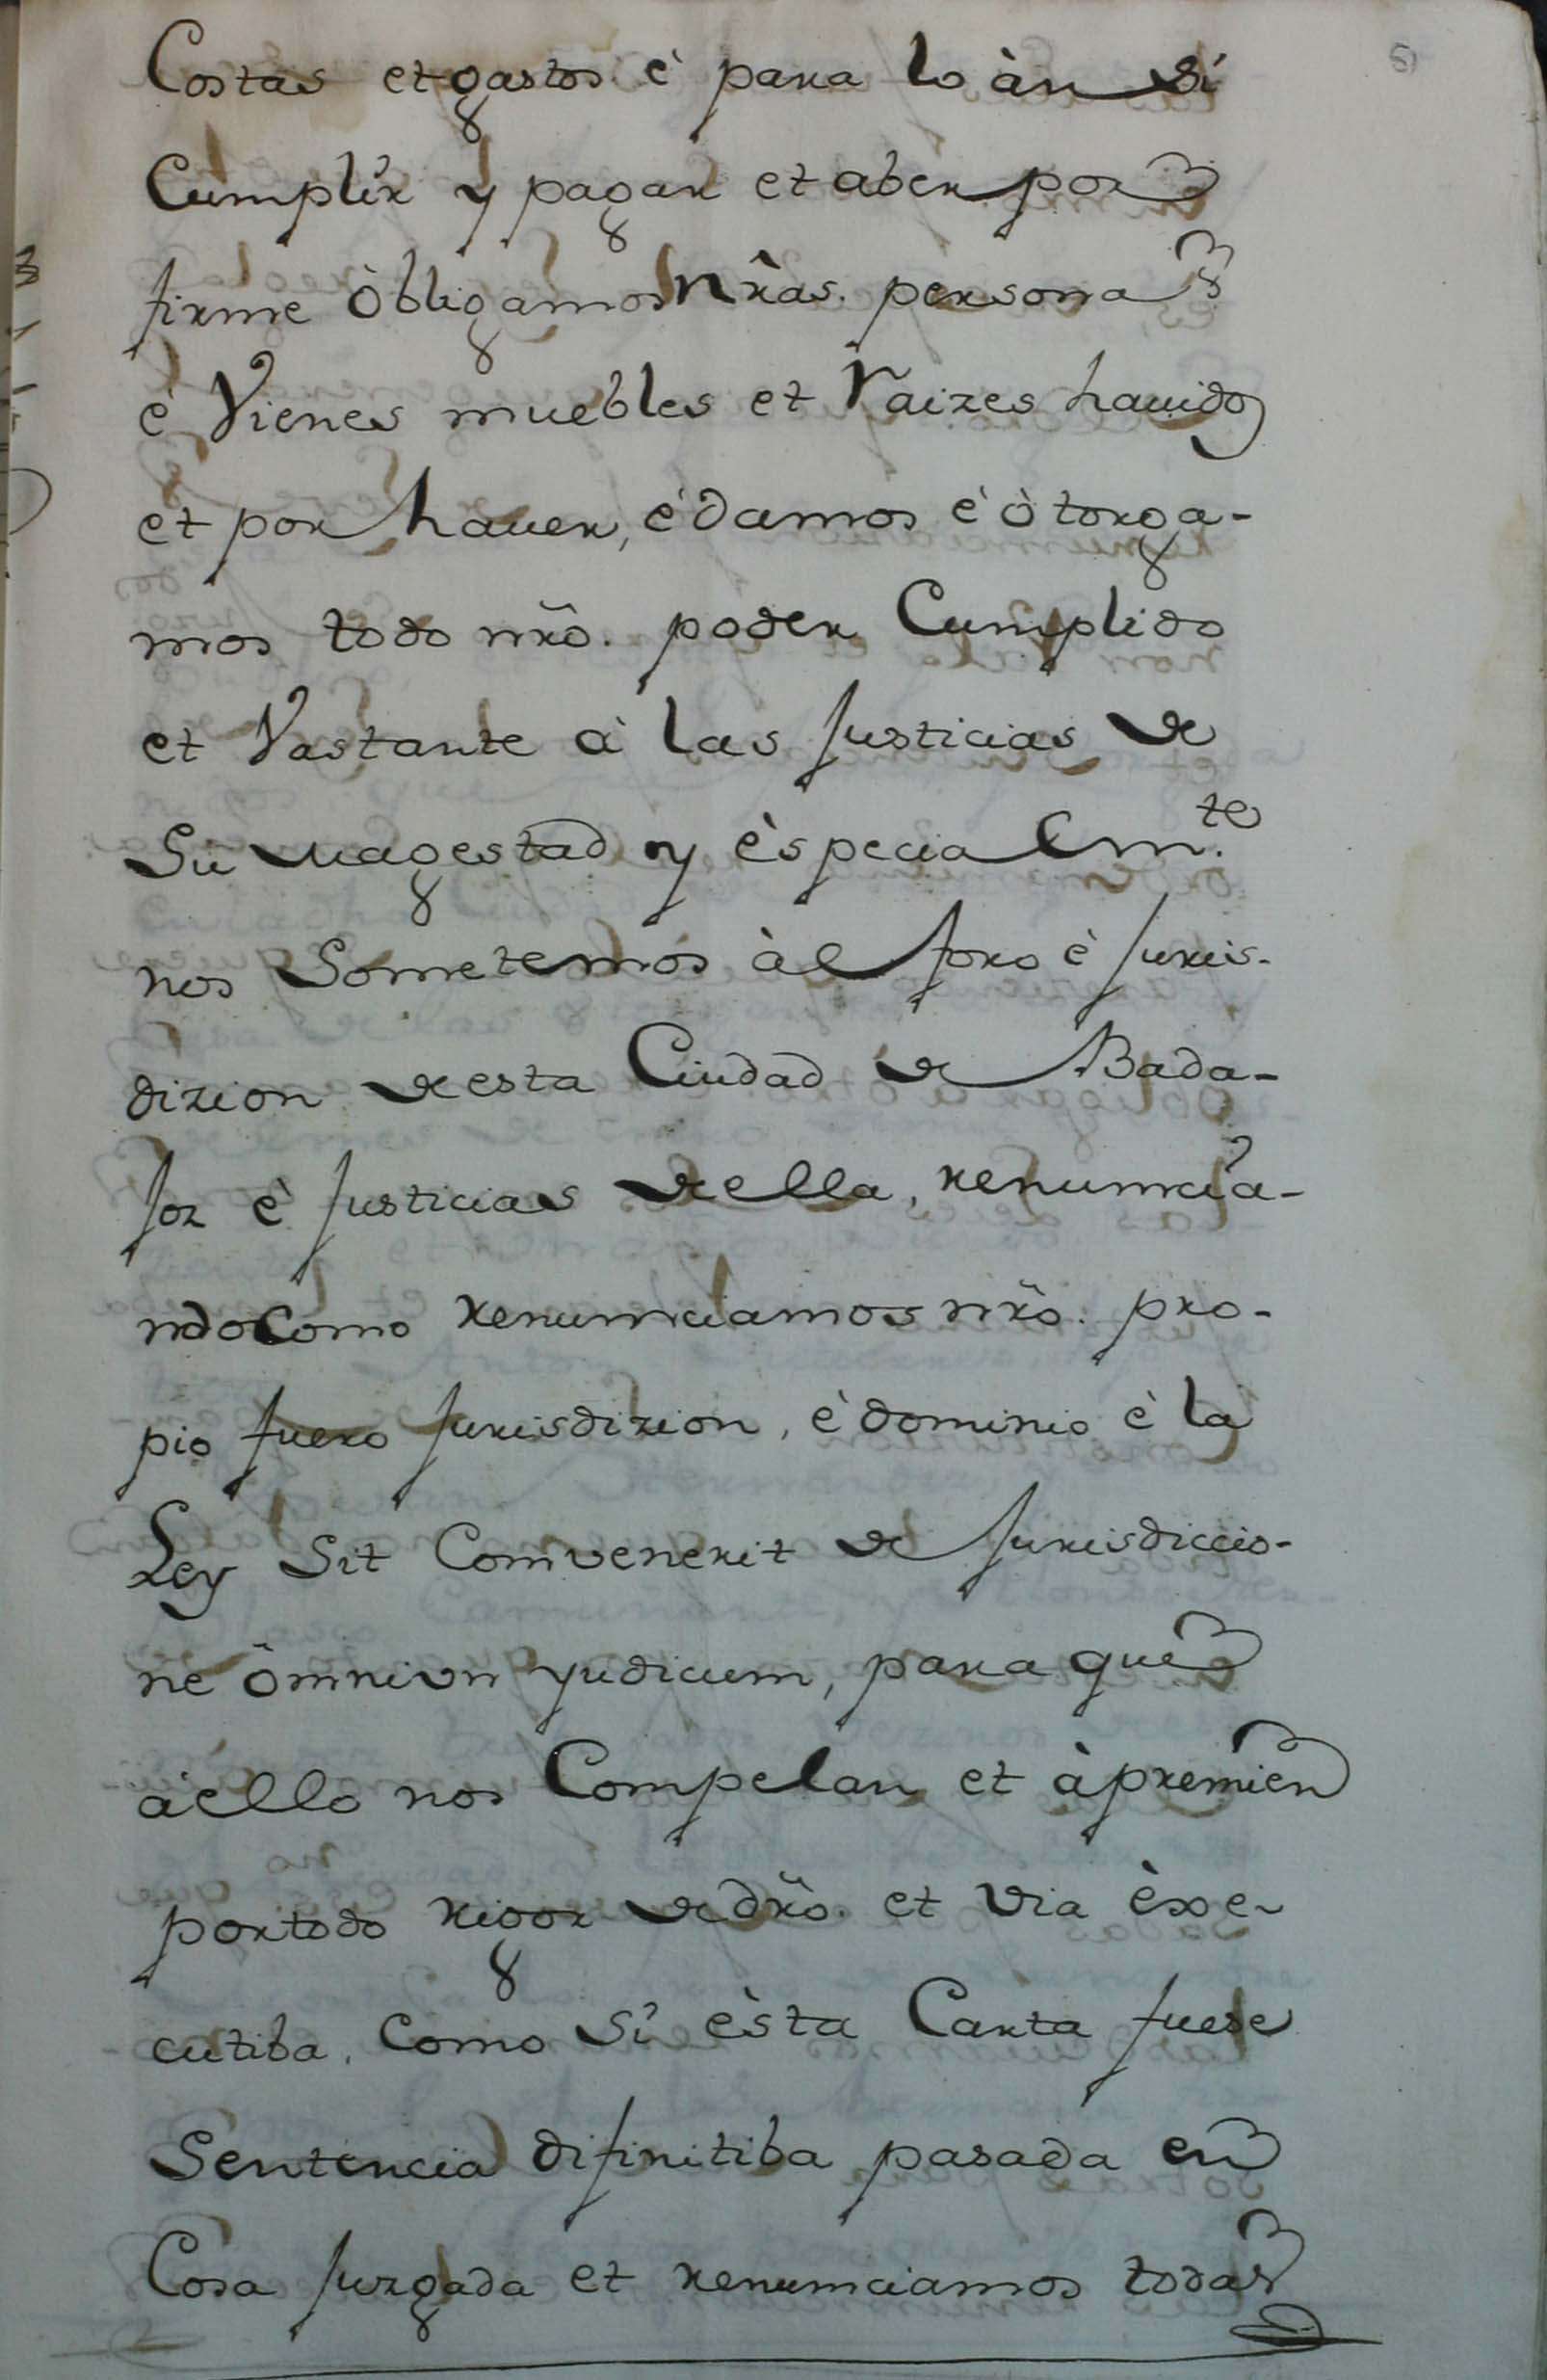 Costas et gastos è para lo àn si
Cumplir y pagar et aber por
firme òbligamos nr̃as. personas
è Vienes muebles et Raizes hauidos
et por hauer, è damos è òtorga-
mos todo nr̃o. poder Cumplido
et Vastante à las Justicias de
Su Magestad y èspecialm.te
nos Sometemos àl foro è Juris-
dizion desta Ciudad de Bada-
Joz è Justicias della, renuncia-
ndo como renunciamos nr̃o. pro-
pio fuero Jurisdizion, è dominio è la
Ley Sit Comvenerit de Jurisdiccio-
ne òmnivn yudicum, para que
àello nos Compelan et àpremien
por todo rigor de dr̃o. et via èxe-
cutiba, como si èsta Carta fuese
Sentencia difinitiba pasada en
Cosa Juzgada et renunciamos todas